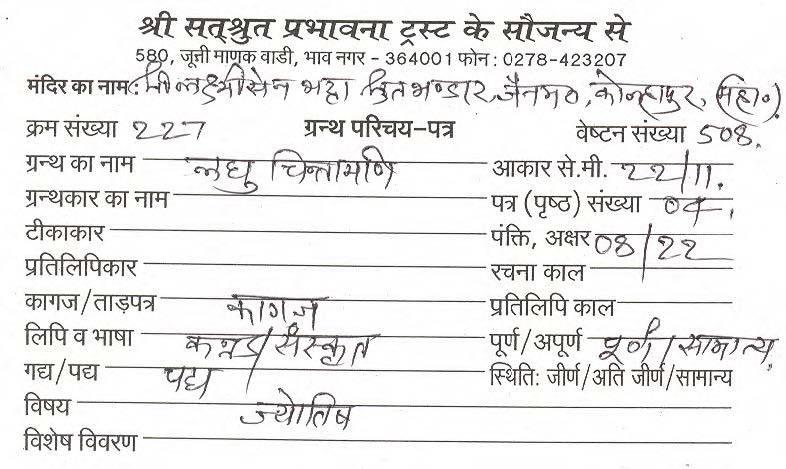 श्री सत्श्रुत प्रभावना ट्रस्ट के सौजन्य से
580, जूनी माणक वाडी, भाव नगर - 364001 फोन : 0278-423207
मंदिर का नाम : श्री लक्ष्मीसेन भट्टा श्रुतभण्डार, जैनमठ, कोल्हापुर, (महा०)
क्रम संख्या 227 ग्रन्थ परिचय-पत्र वेष्टन संख्या 508.
ग्रन्थ का नाम लघु चिन्तामणि आकार से.मी. 22/11.
ग्रन्थकार का नाम पत्र (पृष्ठ) संख्या 04.
टीकाकार पंक्ति, अक्षर 08/22
प्रतिलिपिकार रचना काल
कागज/ताड़पत्र कागज प्रतिलिपि काल
लिपि व भाषा कन्नड/संस्कृत पूर्ण/अपूर्ण पूर्ण/सामान्य.
गद्य/पद्य पद्य स्थिति: जीर्ण/अति जीर्ण/सामान्य
विषय ज्योतिष
विशेष विवरण